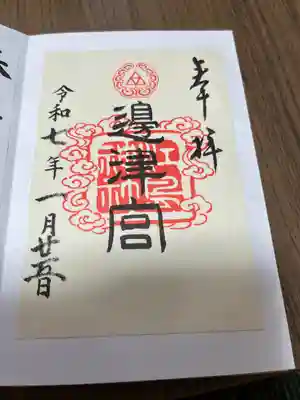 奉拝
邊津宮
令和七年一月廿五日